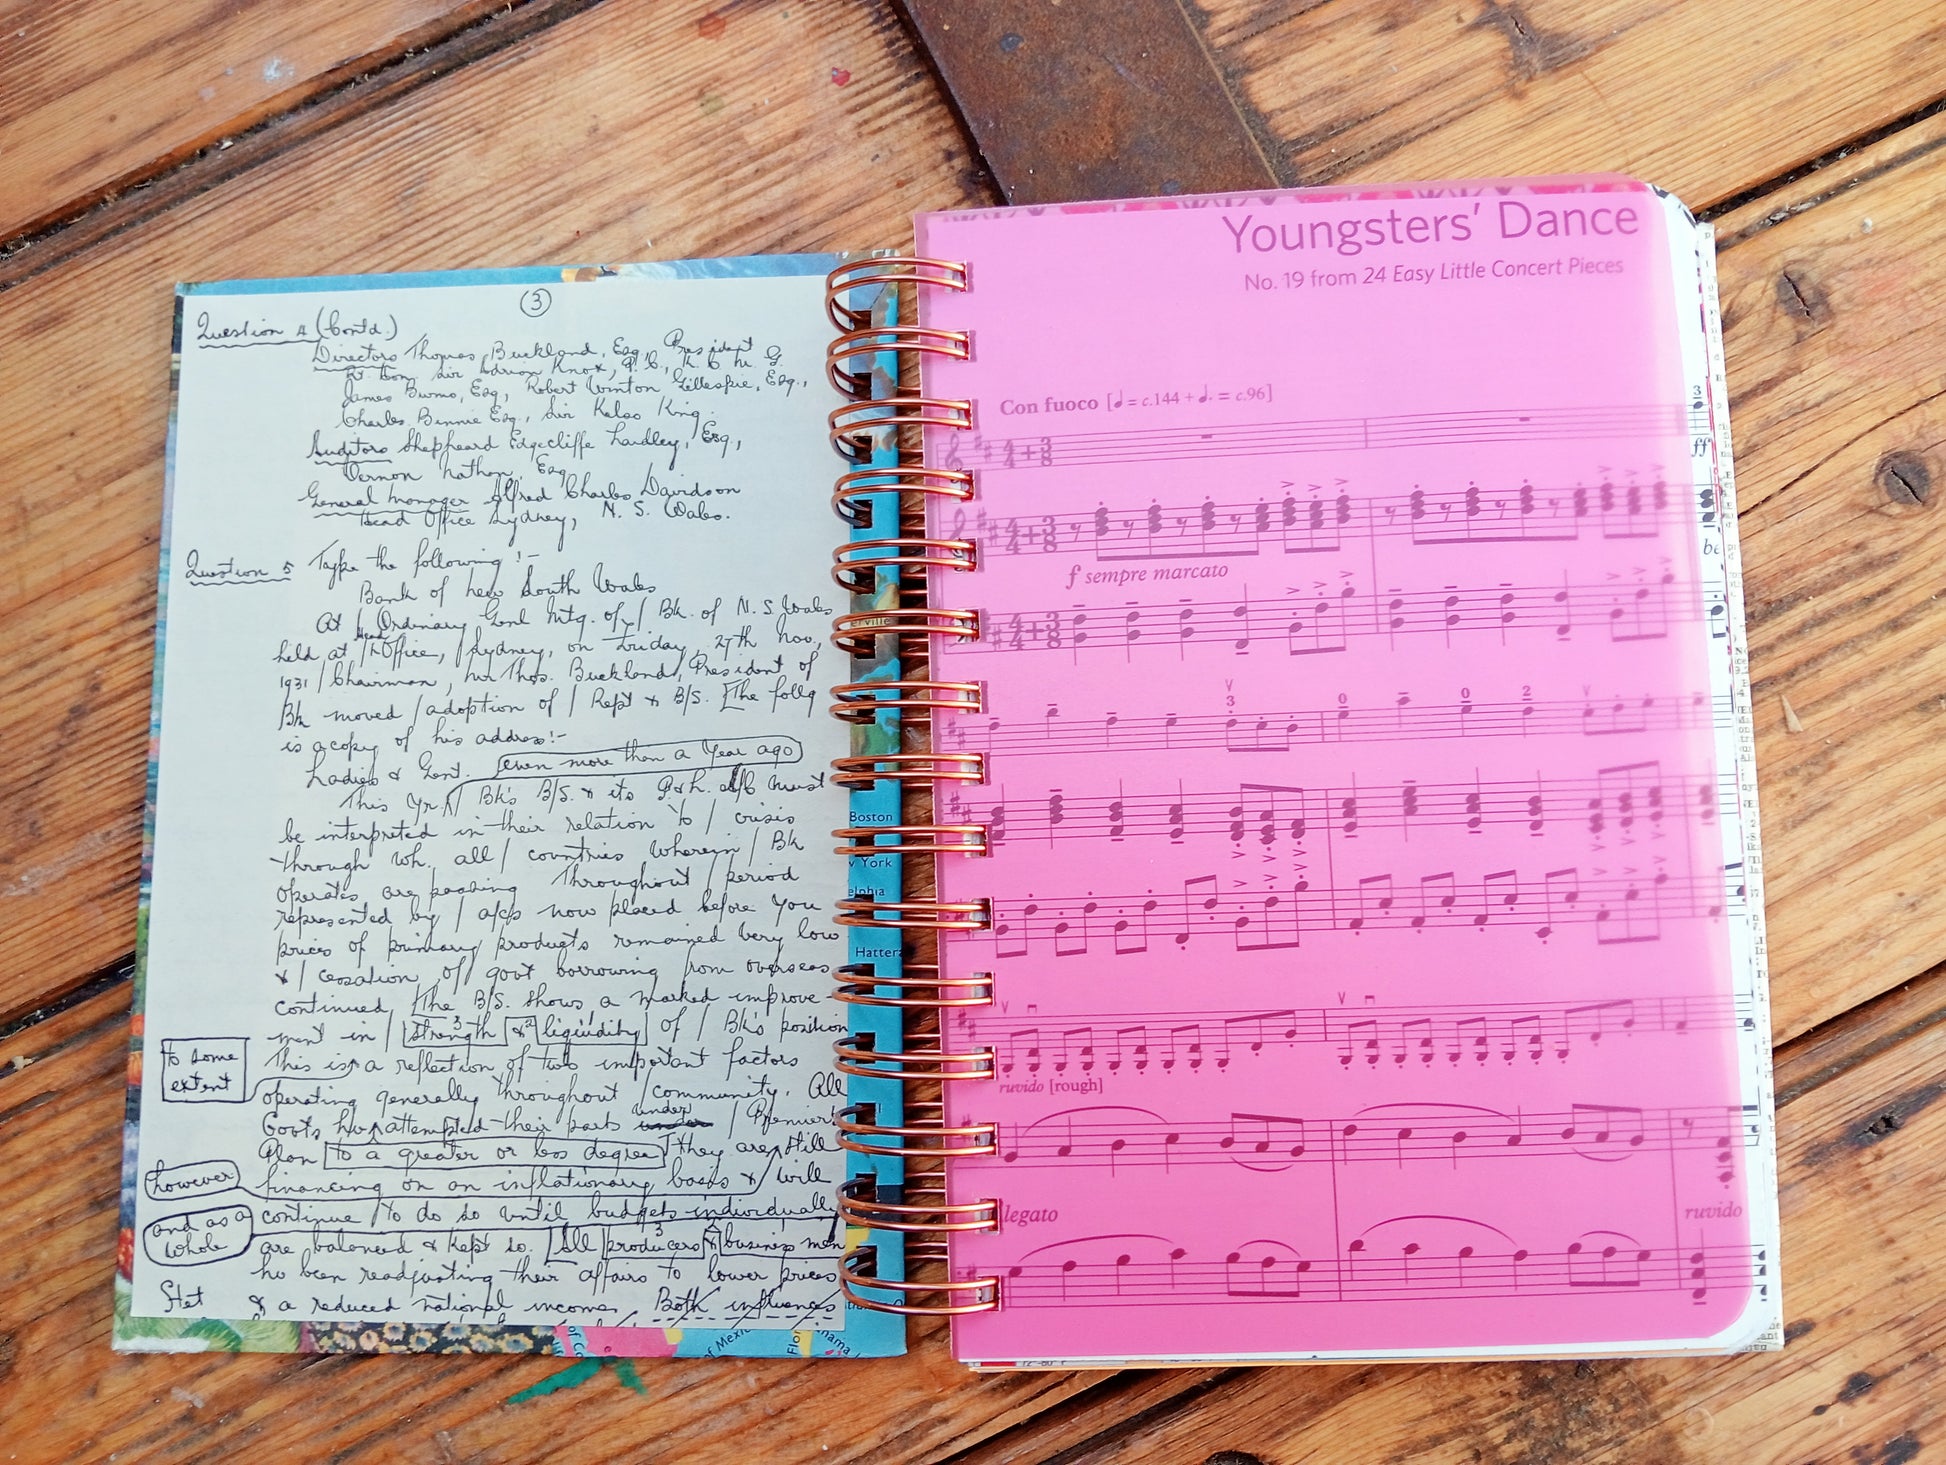 3
Question 4 (Contd.)
Directors Thomas Buckland, Esq., President
Rt. Hon. Sir Adrian Knox, P.C., K.C.M.G.
James Burns, Esq., Robert Winton Gillespie, Esq.,
Charles Binnie Esq., Sir Kelso King.
Auditors Shepheard Edgecliffe Laidley, Esq.,
Vernon Nathan, Esq
General Manager Alfred Charles Davidson
Head Office Sydney, N. S. Wales.
Question 5 Type the following:-
Bank of New South Wales
At / Ordinary Genl Mtg. of / Bk. of N. S. Wales
held at / Head Office, Sydney, on Friday, 27th Nov.,
1931 / Chairman, Mr Thos. Buckland, President of
Bk moved / adoption of / Rept & B/S. [The follg
is a copy of his address:-
Ladies & Gent. even more than a Year ago
This Yr. / Bk's B/S. & its P. & L. a/c must
be interpreted in their relation to / crisis
through wh. all / countries wherein / Bk
operates are passing Throughout / period
represented by / a/cs now placed before you
prices of primary products remained very low
& / cessation of govt borrowing from overseas
continued [The B/S. shows a marked improve-
ment in / strength 3 & 2 liquidity of / Bk's position
to some
extent
This is a reflection of two important factors
operating generally throughout / community. All
Govts hv attempted their parts under / Premiers'
Plan to a greater or less degree [they are still
however
financing on an inflationary basis & will
and as a
whole
continue to do so until budgets individually
are balanced & kept so. [All producers 3 & business men
hv been readjusting their affairs to lower prices
Stet & a reduced national income. Both influences
erville
Boston
w York
elphia
Hattera
of Mexi
Flor
nama
Youngsters' Dance
No. 19 from 24 Easy Little Concert Pieces
Con fuoco [♩ = c.144 + ♩. = c.96]
3
ff
4 4 + 3 8
4 4 + 3 8
f sempre marcato
be
4 4 + 3 8
3 0 0 2
ruvido [rough]
legato
ruvido